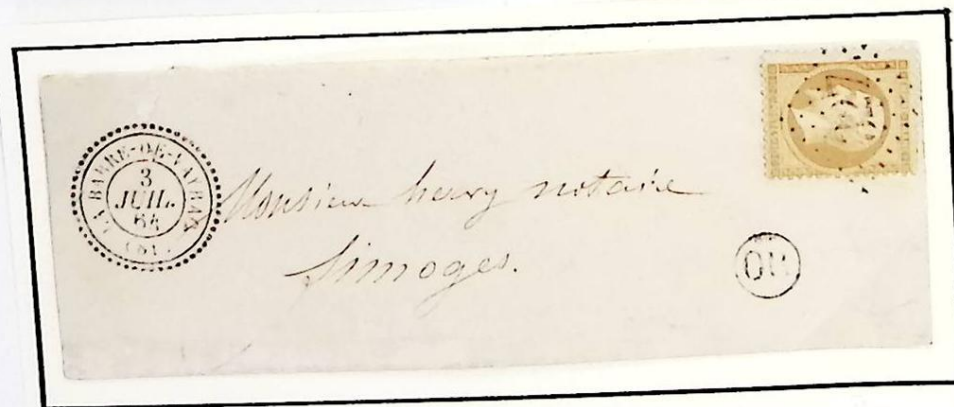 LA BARRE-DE-VEYRAC
3
JUIL.
64
(81)
Monsieur henry notaire
Limoges.
OR